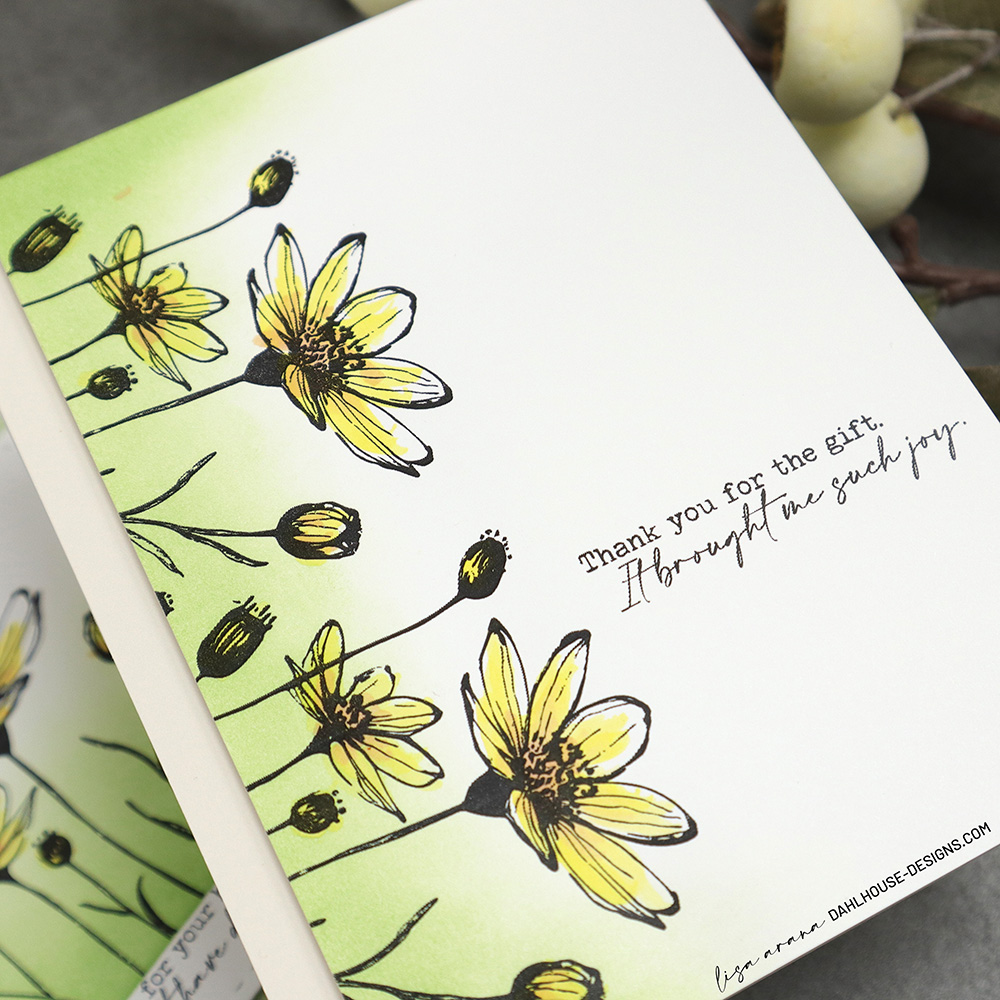 Thank you for the gift.
It brought me such joy.
lisa arana DAHLHOUSE-DESIGNS.COM
for your
have